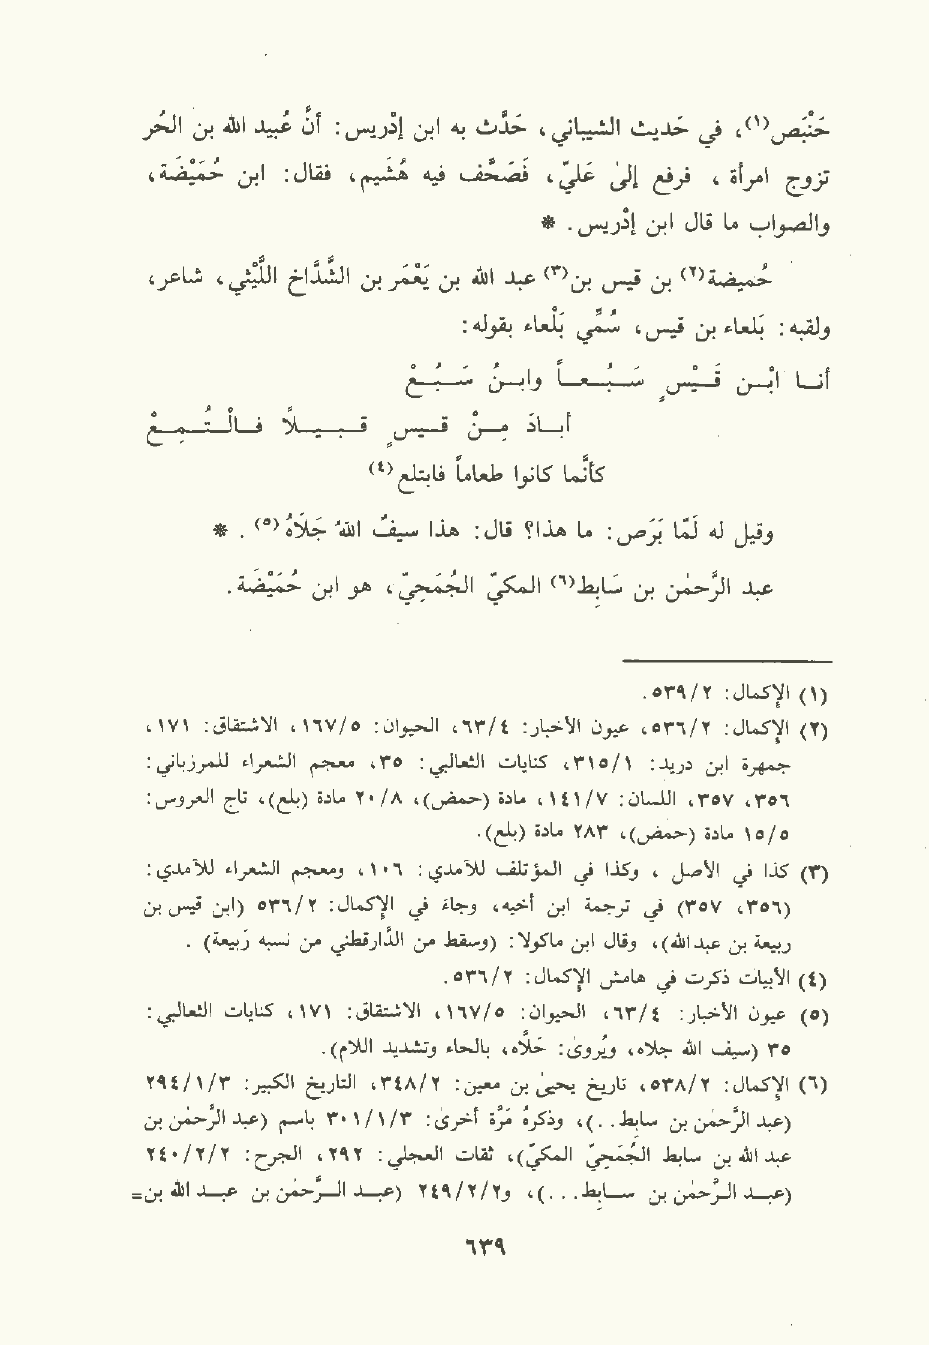 حَنْبَص(١)، في حَديث الشيباني، حَدَّث به ابن إدْريس: أنَّ عُبيد الله بن الحُر
تزوج امرأة ، فرفع إلى عَليّ، فَصَحَّف فيه هُشَيم، فقال: ابن حُمَيْضَة،
والصواب ما قال ابن إدْريس. *
حُميضة(٢) بن قيس بن(٣) عبد الله بن يَعْمَر بن الشَّدَاخ اللَّيْثي، شاعر،
ولقبه: بَلعاء بن قيس، سُمِّي بَلْعاء بقوله:
أنـا ابْـن قَـيْـسٍ سَـبُـعـاً وابـنُ سَـبُـعْ
أبـادَ مِـنْ قيـسٍ قـبـيـلاً فـالْـتُـمِـعْ
كأنَّما كانوا طعاماً فابتلع(٤)
وقيل له لَمّا بَرَص: ما هذا؟ قال: هذا سيفُ اللهُ جَلاَهُ(٥) . *
عبد الرَّحمٰن بن سَابِط(٦) المكيّ الجُمَحِيّ، هو ابن حُمَيْضَة.
(١) الإكمال: ٥٣٩/٢.
(٢) الإكمال: ٥٣٦/٢، عيون الأخبار: ٦٣/٤، الحيوان: ١٦٧/٥، الاشتقاق: ١٧١،
جمهرة ابن دريد: ٣١٥/١، كنايات الثعالبي: ٣٥، معجم الشعراء للمرزباني:
٣٥٦، ٣٥٧، اللسان: ١٤١/٧، مادة (حمض)، ٢٠/٨ مادة (بلع)، تاج العروس:
١٥/٥ مادة (حمض)، ٢٨٣ مادة (بلع).
(٣) كذا في الأصل ، وكذا في المؤتلف للآمدي: ١٠٦، ومعجم الشعراء للآمدي:
(٣٥٦، ٣٥٧) في ترجمة ابن أخيه، وجاء في الإكمال: ٥٣٦/٢ (ابن قيس بن
ربيعة بن عبدالله)، وقال ابن ماكولا: (وسقط من الدارقطني من نسبه رَبيعة) .
(٤) الأبيات ذكرت في هامش الإكمال: ٥٣٦/٢.
(٥) عيون الأخبار: ٦٣/٤، الحيوان: ١٦٧/٥، الاشتقاق: ١٧١، كنايات الثعالبي:
٣٥ (سيف الله جلاه، ويُروى: حَلاّه، بالحاء وتشديد اللام).
(٦) الإكمال: ٥٣٨/٢، تاريخ يحيىٰ بن معين: ٣٤٨/٢، التاريخ الكبير: ٢٩٤/١/٣
(عبد الرَّحمٰن بن سابِط..)، وذكرهُ مَرَّة أخرى: ٣٠١/١/٣ باسم (عبد الرَّحمٰن بن
عبد الله بن سابط الجُمَحيّ المكيّ)، ثقات العجلي: ٢٩٢، الجرح: ٢٤٠/٢/٢
(عبد الرَّحمٰن بن سابِط...)، و٢٤٩/٢/٢ (عبد الرَّحمٰن بن عبد الله بن=
٦٣٩